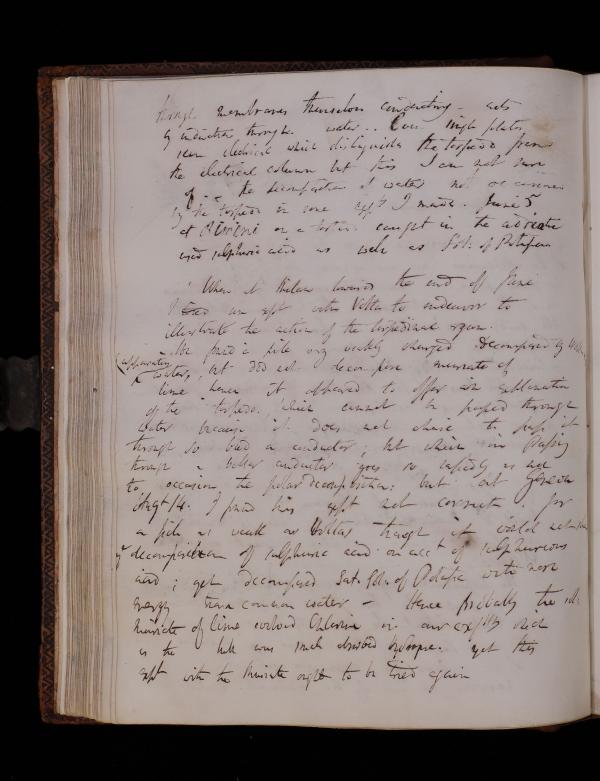 though membranes themselves conducting - acts
by induction through water.. Even high plates
seem electrical which distinguishes the torpedo from
the electrical column but this I am not sure
of. - the decomposition of water not occasioned
by the torpedo in some expts I made. June 5
at Rimini on a torpedo caught in the adriatic
used sulphuric acid as well as Sol: of Potassa
When at Milan towards the end of June
I tried an expt with Volta to endeavor to
illustrate the action of the torpedinal organ.
We found a pile very weakly charged decomposed by
(apparently
water, but did not decompose muriate of
lime hence it appeared to offer an explanation
of the torpedo. which cannot be passed through
water because it does not chuse to pass it
through so bad a conductor; but when in passing
through a better conductor goes so rapidly as not
to occasion the polar decomposition: but at Geneva
Augt 14. I found this expt not correct. for
a pile as weak as Voltas though it would not
decomposition of sulphuric acid on acct of sulphureous
acid; yet decomposed Sat. Soln of Potassa with more
energy than common water - Hence probably the
muriate of lime evolved Chlorine in our expts which
as the was much absorbed hydrogen. yet this
expt with the Muriate ought to be tried again